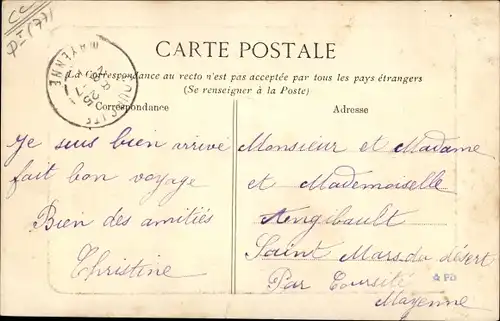 CARTE POSTALE
La Correspondance au recto n'est pas acceptée par tous les pays étrangers
(Se renseigner à la Poste)
Correspondance
Adresse
MAYENNE
Je suis bien arrivé
fait bon voyage
Bien des amitiés
Christine
Monsieur et Madame
et Mademoiselle
Angibault
Saint Mars du désert
Par Coursité
Mayenne